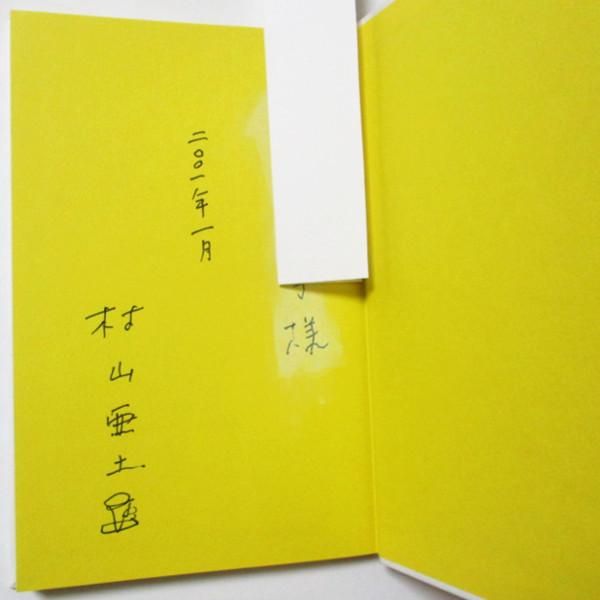 様
二〇〇一年一月
村山亜土